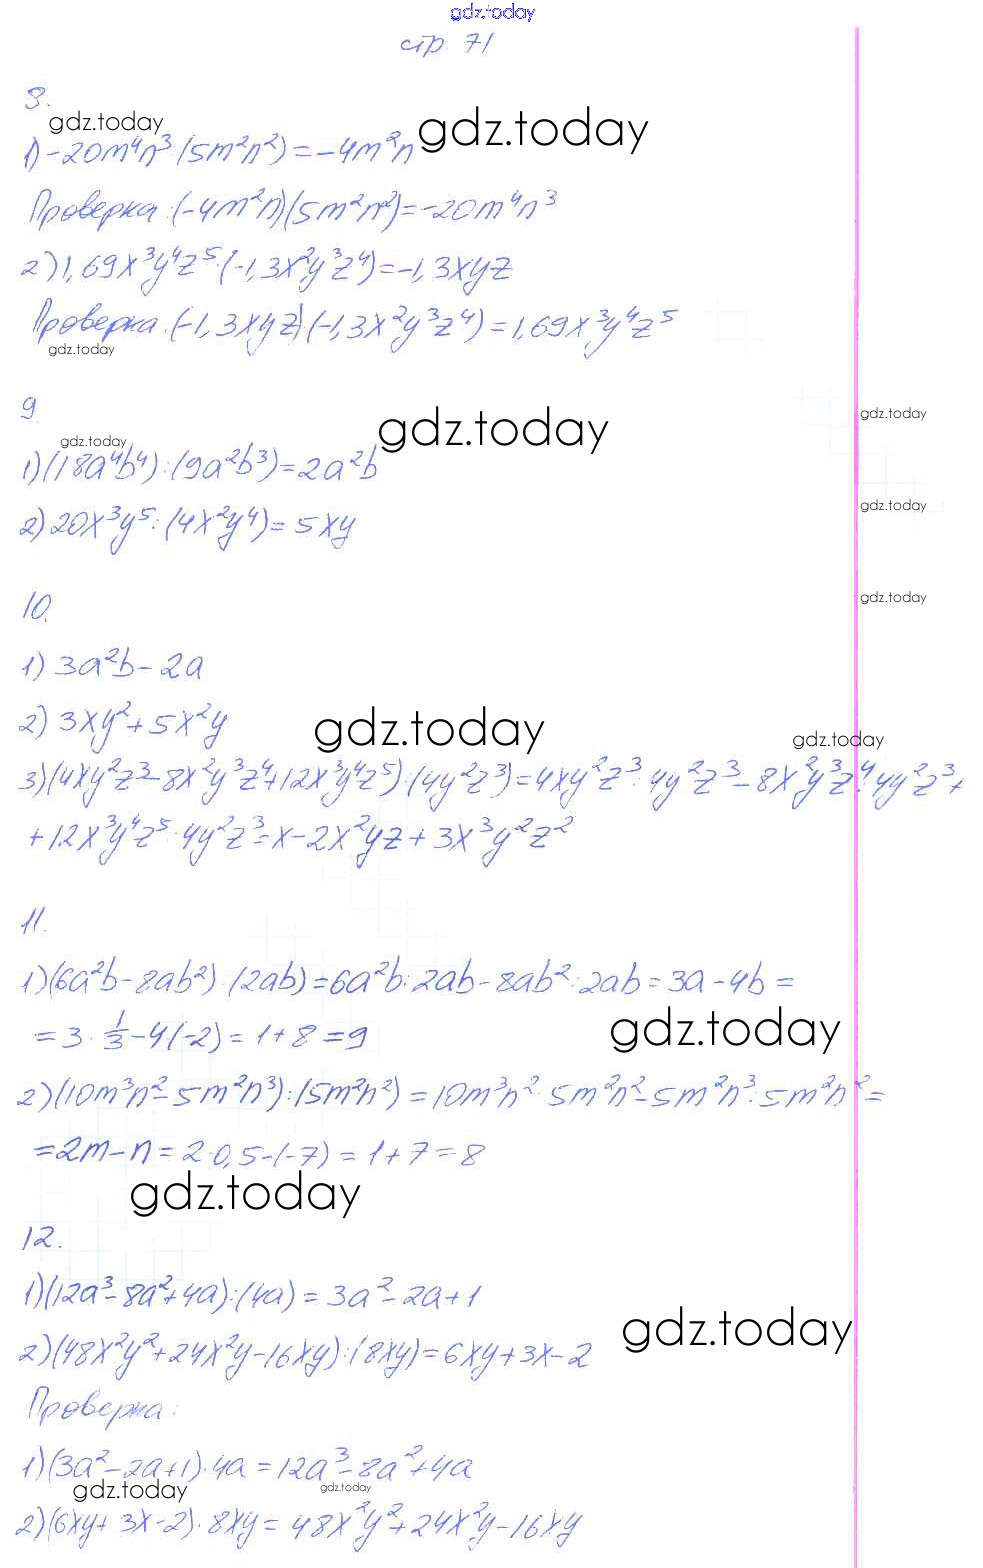 gdz.today
стр. 71
8.
gdz.today
gdz.today
1) -20m⁴n³ : (5m²n²) = -4m²n
Проверка: (-4m²n)(5m²n²) = -20m⁴n³
2) 1,69x³y⁴z⁵ : (-1,3x²y³z⁴) = -1,3xyz
Проверка: (-1,3xyz)(-1,3x²y³z⁴) = 1,69x³y⁴z⁵
gdz.today
9.
gdz.today
gdz.today
gdz.today
1) (18a⁴b⁴) : (9a²b³) = 2a²b
gdz.today
2) 20x³y⁵ : (4x²y⁴) = 5xy
10.
gdz.today
1) 3a²b - 2a
2) 3xy² + 5x²y
gdz.today
gdz.today
3) (4xy²z³ - 8x²y³z⁴ + 12x³y⁴z⁵) : (4y²z³) = 4xy²z³ : 4y²z³ - 8x²y³z⁴ : 4y²z³ +
+ 12x³y⁴z⁵ : 4y²z³ = x - 2x²yz + 3x³y²z²
11.
1) (6a²b - 8ab²) : (2ab) = 6a²b : 2ab - 8ab² : 2ab = 3a - 4b =
= 3 · 1/3 - 4(-2) = 1 + 8 = 9
gdz.today
2) (10m³n² - 5m²n³) : (5m²n²) = 10m³n² : 5m²n² - 5m²n³ : 5m²n² =
= 2m - n = 2·0,5 - (-7) = 1 + 7 = 8
gdz.today
12.
1) (12a³ - 8a² + 4a) : (4a) = 3a² - 2a + 1
gdz.today
2) (48x²y² + 24x²y - 16xy) : (8xy) = 6xy + 3x - 2
Проверка:
1) (3a² - 2a + 1) · 4a = 12a³ - 8a² + 4a
gdz.today
gdz.today
2) (6xy + 3x - 2) · 8xy = 48x²y² + 24x²y - 16xy